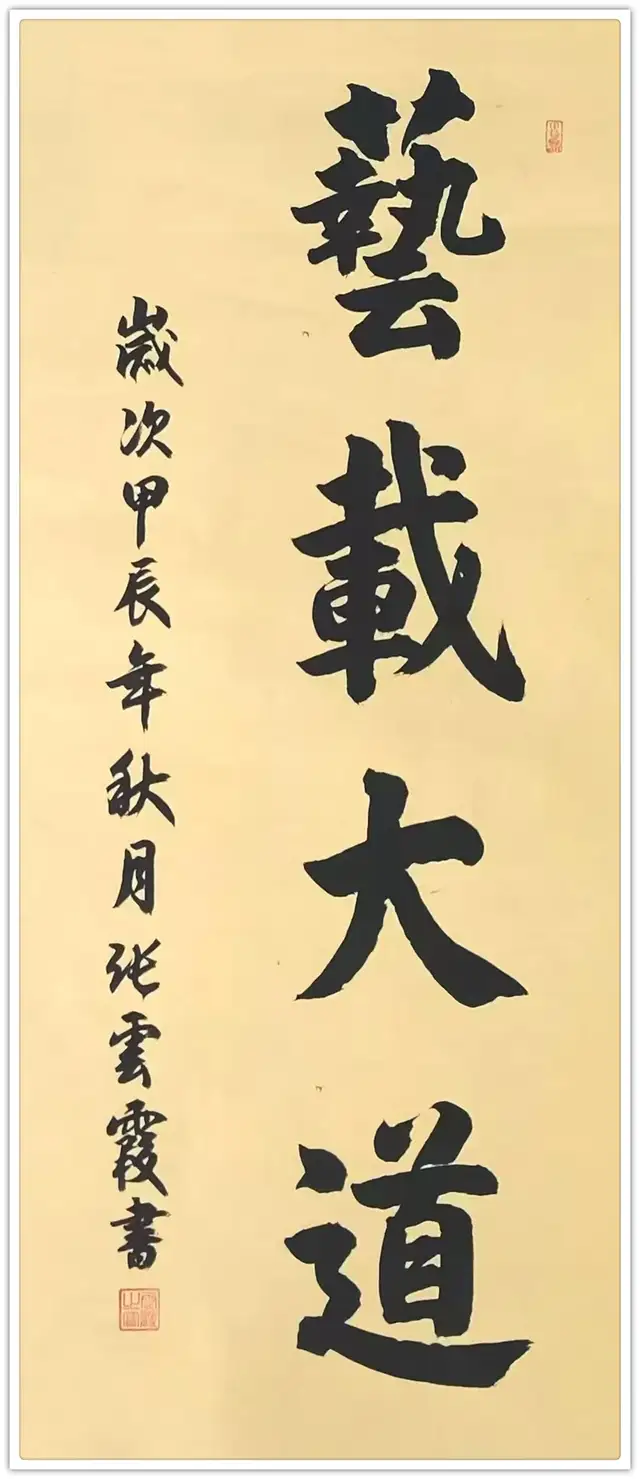 藝載大道
歲次甲辰年秋月张雲霞書